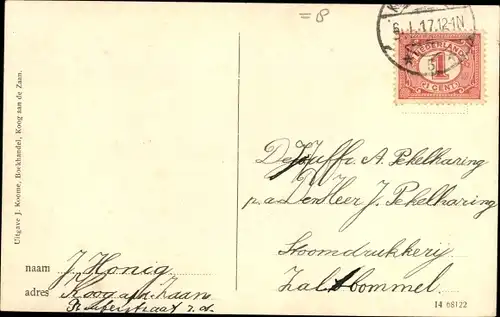 =8
6.1.17.12-1N
NEDERLAND
1
CENT
5
De Juffr. A. Pekelharing
p.a. Den Heer J. Pekelharing
Stoomdrukkerij
Zaltbommel
Uitgave J. Koome, Boekhandel, Koog aan de Zaan.
naam J. Honig
adres Koog aan Zaan
14 68122